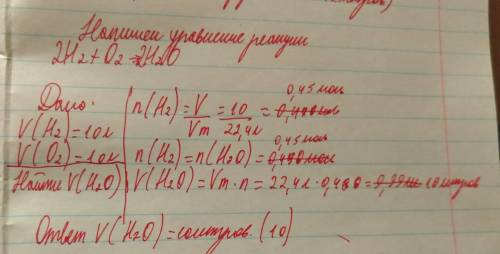 Напишем уравнение реакции
2H2 + O2 = 2H2O
Дано:
V(H2) = 10л
V(O2) = 10л
Найти V(H2O)
n(H2) = V/Vm = 10/22,4л = 0,45 моль
n(H2) = n(H2O) = 0,45 моль
V(H2O) = Vm · n = 22,4л · 0,400 = 10 литров
Ответ V(H2O) = литров. (10)